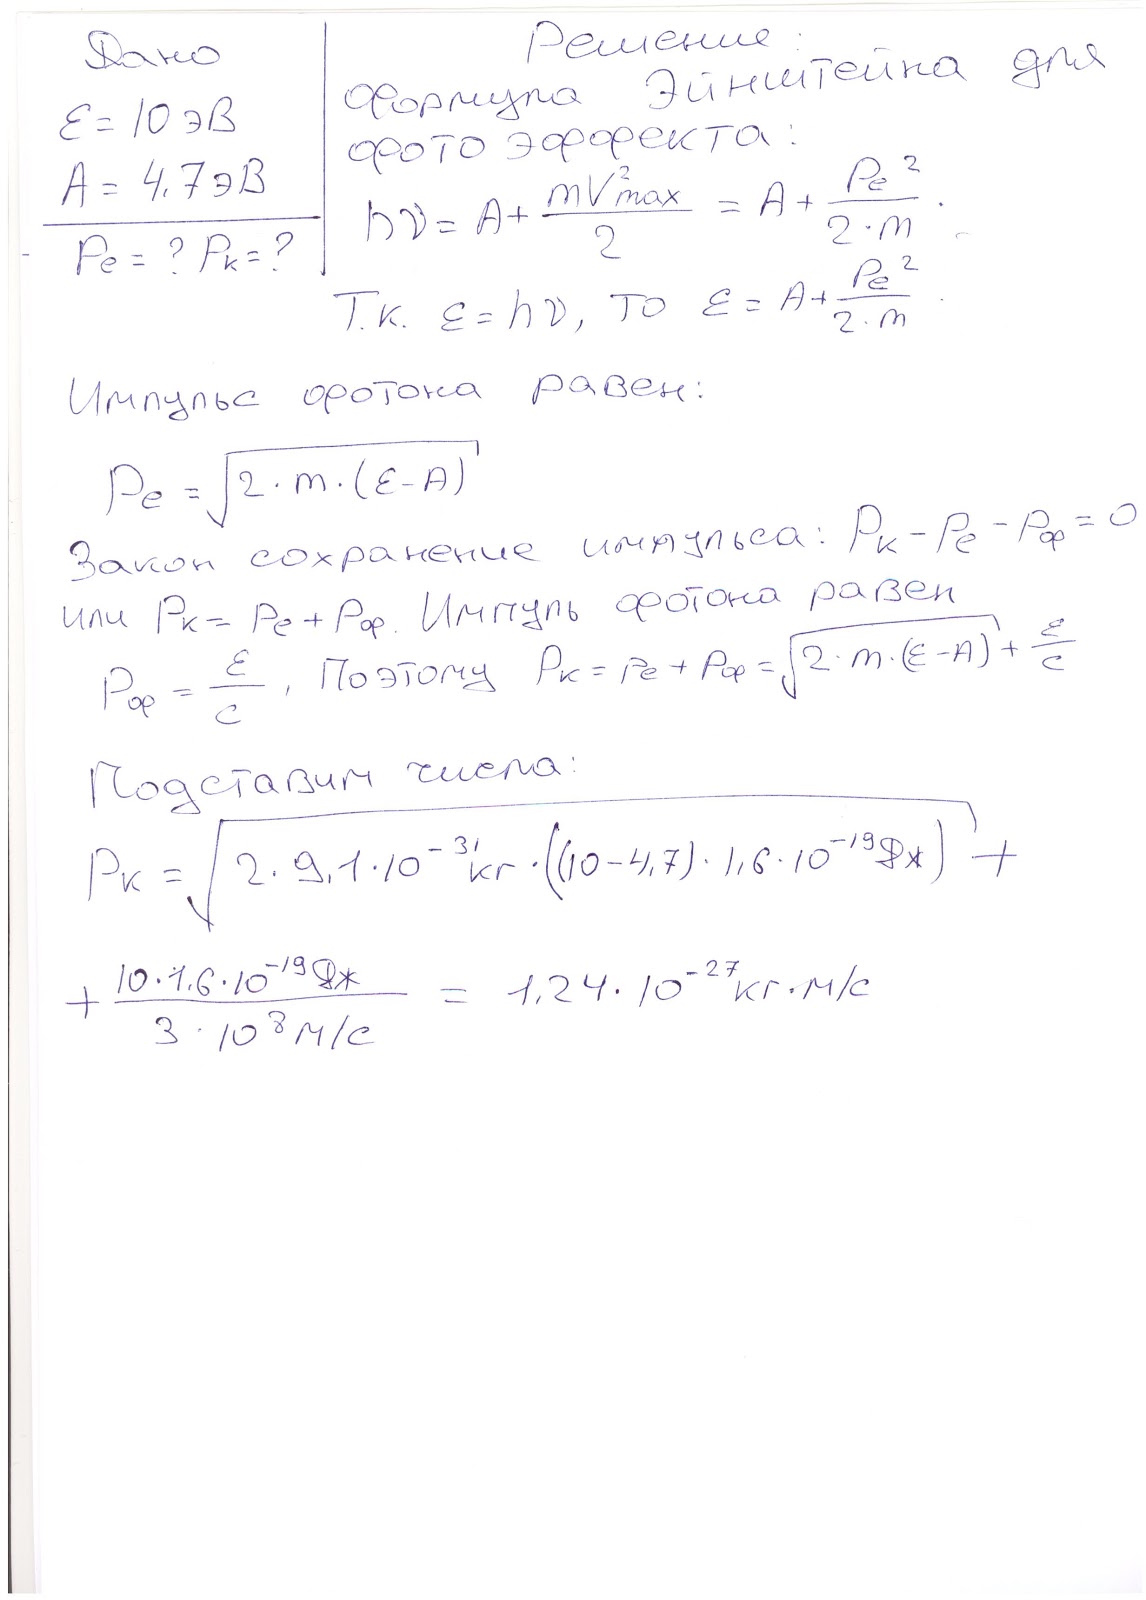 Дано
ε = 10 эВ
A = 4,7 эВ
Pe = ? Pк = ?
Решение:
Формула Эйнштейна для
фото эффекта:
hν = A + mV²max/2 = A + Pe²/2·m.
Т.к. ε = hν, то ε = A + Pe²/2·m.
Импульс фотона равен:
Pe = √(2·m·(ε-A))
Закон сохранение импульса: Pк - Pe - Pф = 0
или Pк = Pe + Pф. Импуль фотона равен
Pф = ε/c, Поэтому Pк = Pe + Pф = √(2·m·(ε-A)) + ε/c
Подставим числа:
Pк = √(2·9,1·10⁻³¹кг·((10-4,7)·1,6·10⁻¹⁹Дж)) +
+ 10·1,6·10⁻¹⁹Дж/3·10⁸м/с = 1,24·10⁻²⁷кг·м/с